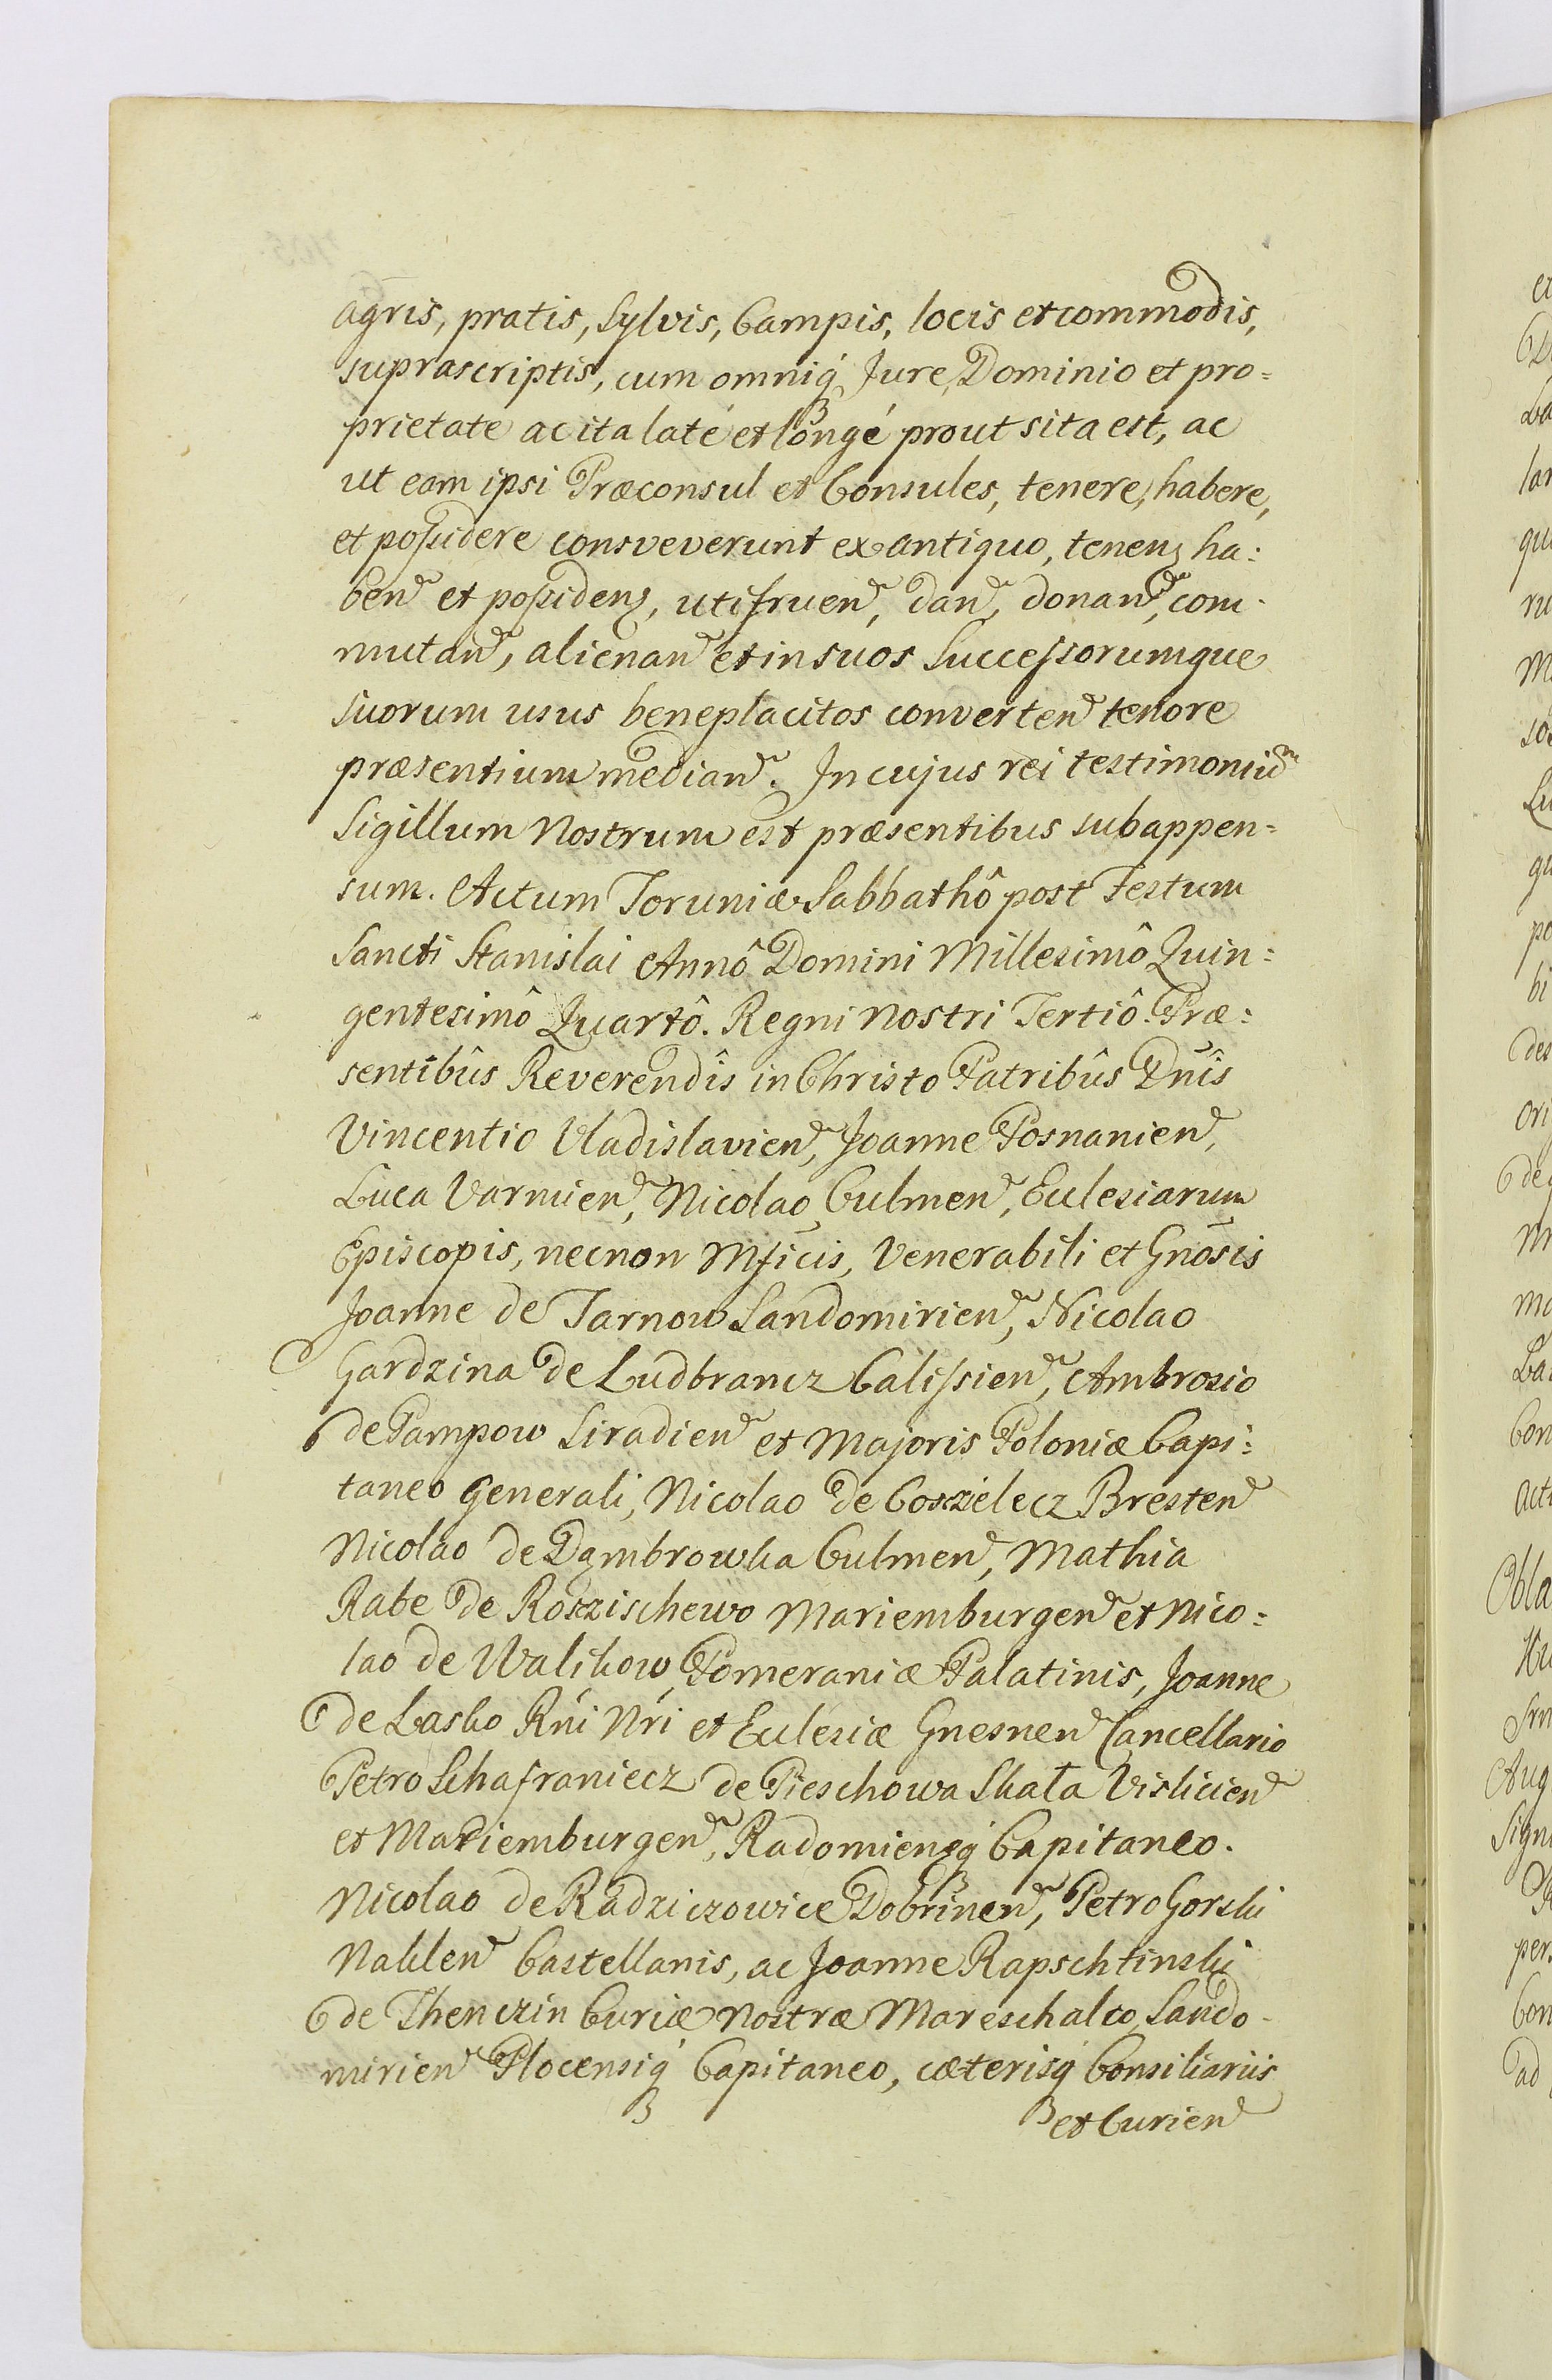 agris, pratis, Sylvis, Campis, locis et commodis,
suprascriptis, cum omniq́ Jure, Dominio et pro=
prietate ac ita laté et longé prout sita est, ac
ut eam ipsi Præconsul et Consules, tenere, habere,
et possidere consveverunt ex antiquo, tenen, ha:
ben et possiden, utifruen, dan, donan, com-
mutan, alienan et in suos Successorumque
suorum usus beneplacitos converten tenore
præsentium median. In cujus rei testimoniu͂m
Sigillum Nostrum est præsentibus subappen=
sum. Actum Toruniæ Sabbathô post Festum
Sancti Stanislai Annô Domini Millesimô Quin=
gentesimô Quartô. Regni Nostri Tertiô. Præ:
sentibûs Reverendîs in Christo Patribûs Dn̄is
Vincentio Vladislavien, Joanne Posnanien,
Luca Varmien, Nicolao Culmen, Ecclesiarum
Episcopis, necnon Mficis, Venerabili et Gnōsis
Joanne de Tarnow Sandomirien, Nicolao
Gardzina de Ludbrancz Calissien, Ambrosio
de Pampow Siradien et Majoris Poloniæ Capi:
taneo Generali, Nicolao de Coszielecz Bresten
Nicolao de Dąmbrowka Culmen, Mathia
Rabe de Roszischewo Mariemburgen et Nico:
lao de Walikow, Pomeraniæ Palatinis, Joanne
de Lasko Rńi Nŕi et Ecclesiæ Gnesnen Cancellario
Petro Schafraniecz de Pieschowa Skała Vislicien
et Mariemburgen, Radomiensq́ Capitaneo.
Nicolao de Radziczowice Dobrinen, Petro Gorski
Naklen Castellanis, ac Joanne Rapschtinski
de Thenczin Curiæ Nostræ Mareschalco, Sando-
mirien Plocensiq́ Capitaneo, cæterisq́ Consiliariis
et Curien